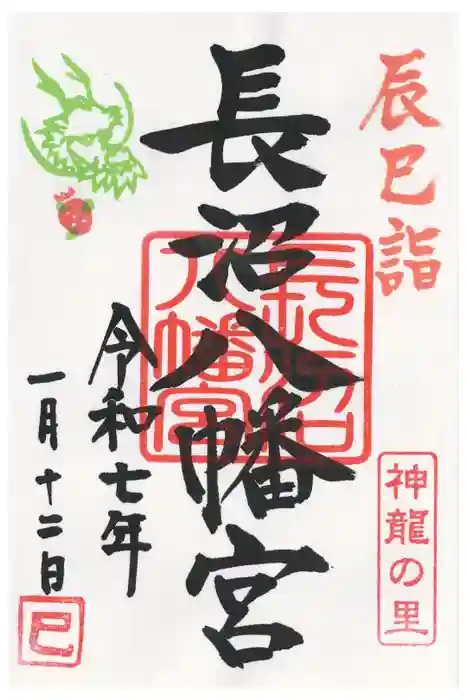 辰巳詣
神龍の里
長沼八幡宮
長沼八幡宮
令和七年
一月十二日
巳